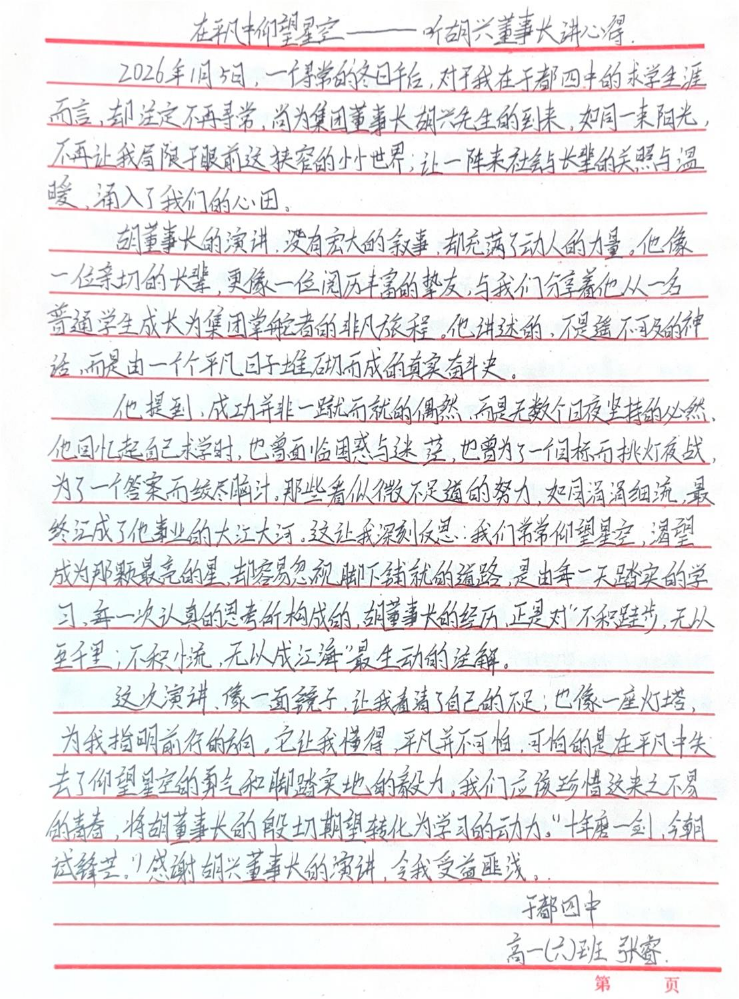 在平凡中仰望星空———听胡兴董事长讲心得.
2026年1月5日，一个寻常的冬日午后，对于我在于都四中的求学生涯
而言，却注定不再寻常，尚为集团董事长胡兴先生的到来，如同一束阳光，
不再让我局限于眼前这狭窄的小小世界；让一阵来社会与长辈的关照与温
暖，涌入了我们的心田。
胡董事长的演讲，没有宏大的叙事，却充满了动人的力量。他像
一位亲切的长辈，更像一位阅历丰富的挚友，与我们分享着他从一名
普通学生成长为集团掌舵者的非凡旅程。他讲述的，不是遥不可及的神
话，而是由一个个平凡日子堆砌而成的真实奋斗史。
他提到，成功并非一蹴而就的偶然，而是无数个日夜坚持的必然，
他回忆起自己求学时，也曾面临困惑与迷茫，也曾为了一个目标而挑灯夜战，
为了一个答案而绞尽脑汁。那些看似微不足道的努力，如同涓涓细流，最
终汇成了他事业的大江大河。这让我深刻反思：我们常常仰望星空，渴望
成为那颗最亮的星，却容易忽视脚下铺就的道路，是由每一天踏实的学
习，每一次认真的思考所构成的，胡董事长的经历，正是对“不积跬步，无以
至千里；不积小流，无以成江海”最生动的注解。
这次演讲，像一面镜子，让我看清了自己的不足；也像一座灯塔，
为我指明前行的方向，它让我懂得，平凡并不可怕，可怕的是在平凡中失
去了仰望星空的勇气和脚踏实地的毅力。我们应该珍惜这来之不易
的青春，将胡董事长的殷切期望转化为学习的动力。“十年磨一剑，今朝
试锋芒。”感谢胡兴董事长的演讲，令我受益匪浅。
于都四中
高一(六)班 张睿.
第 页